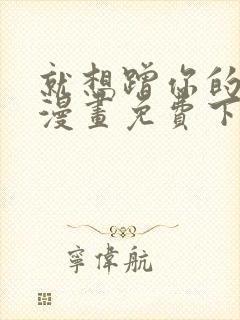 就想蹭你的
漫畫免費下
寧偉航